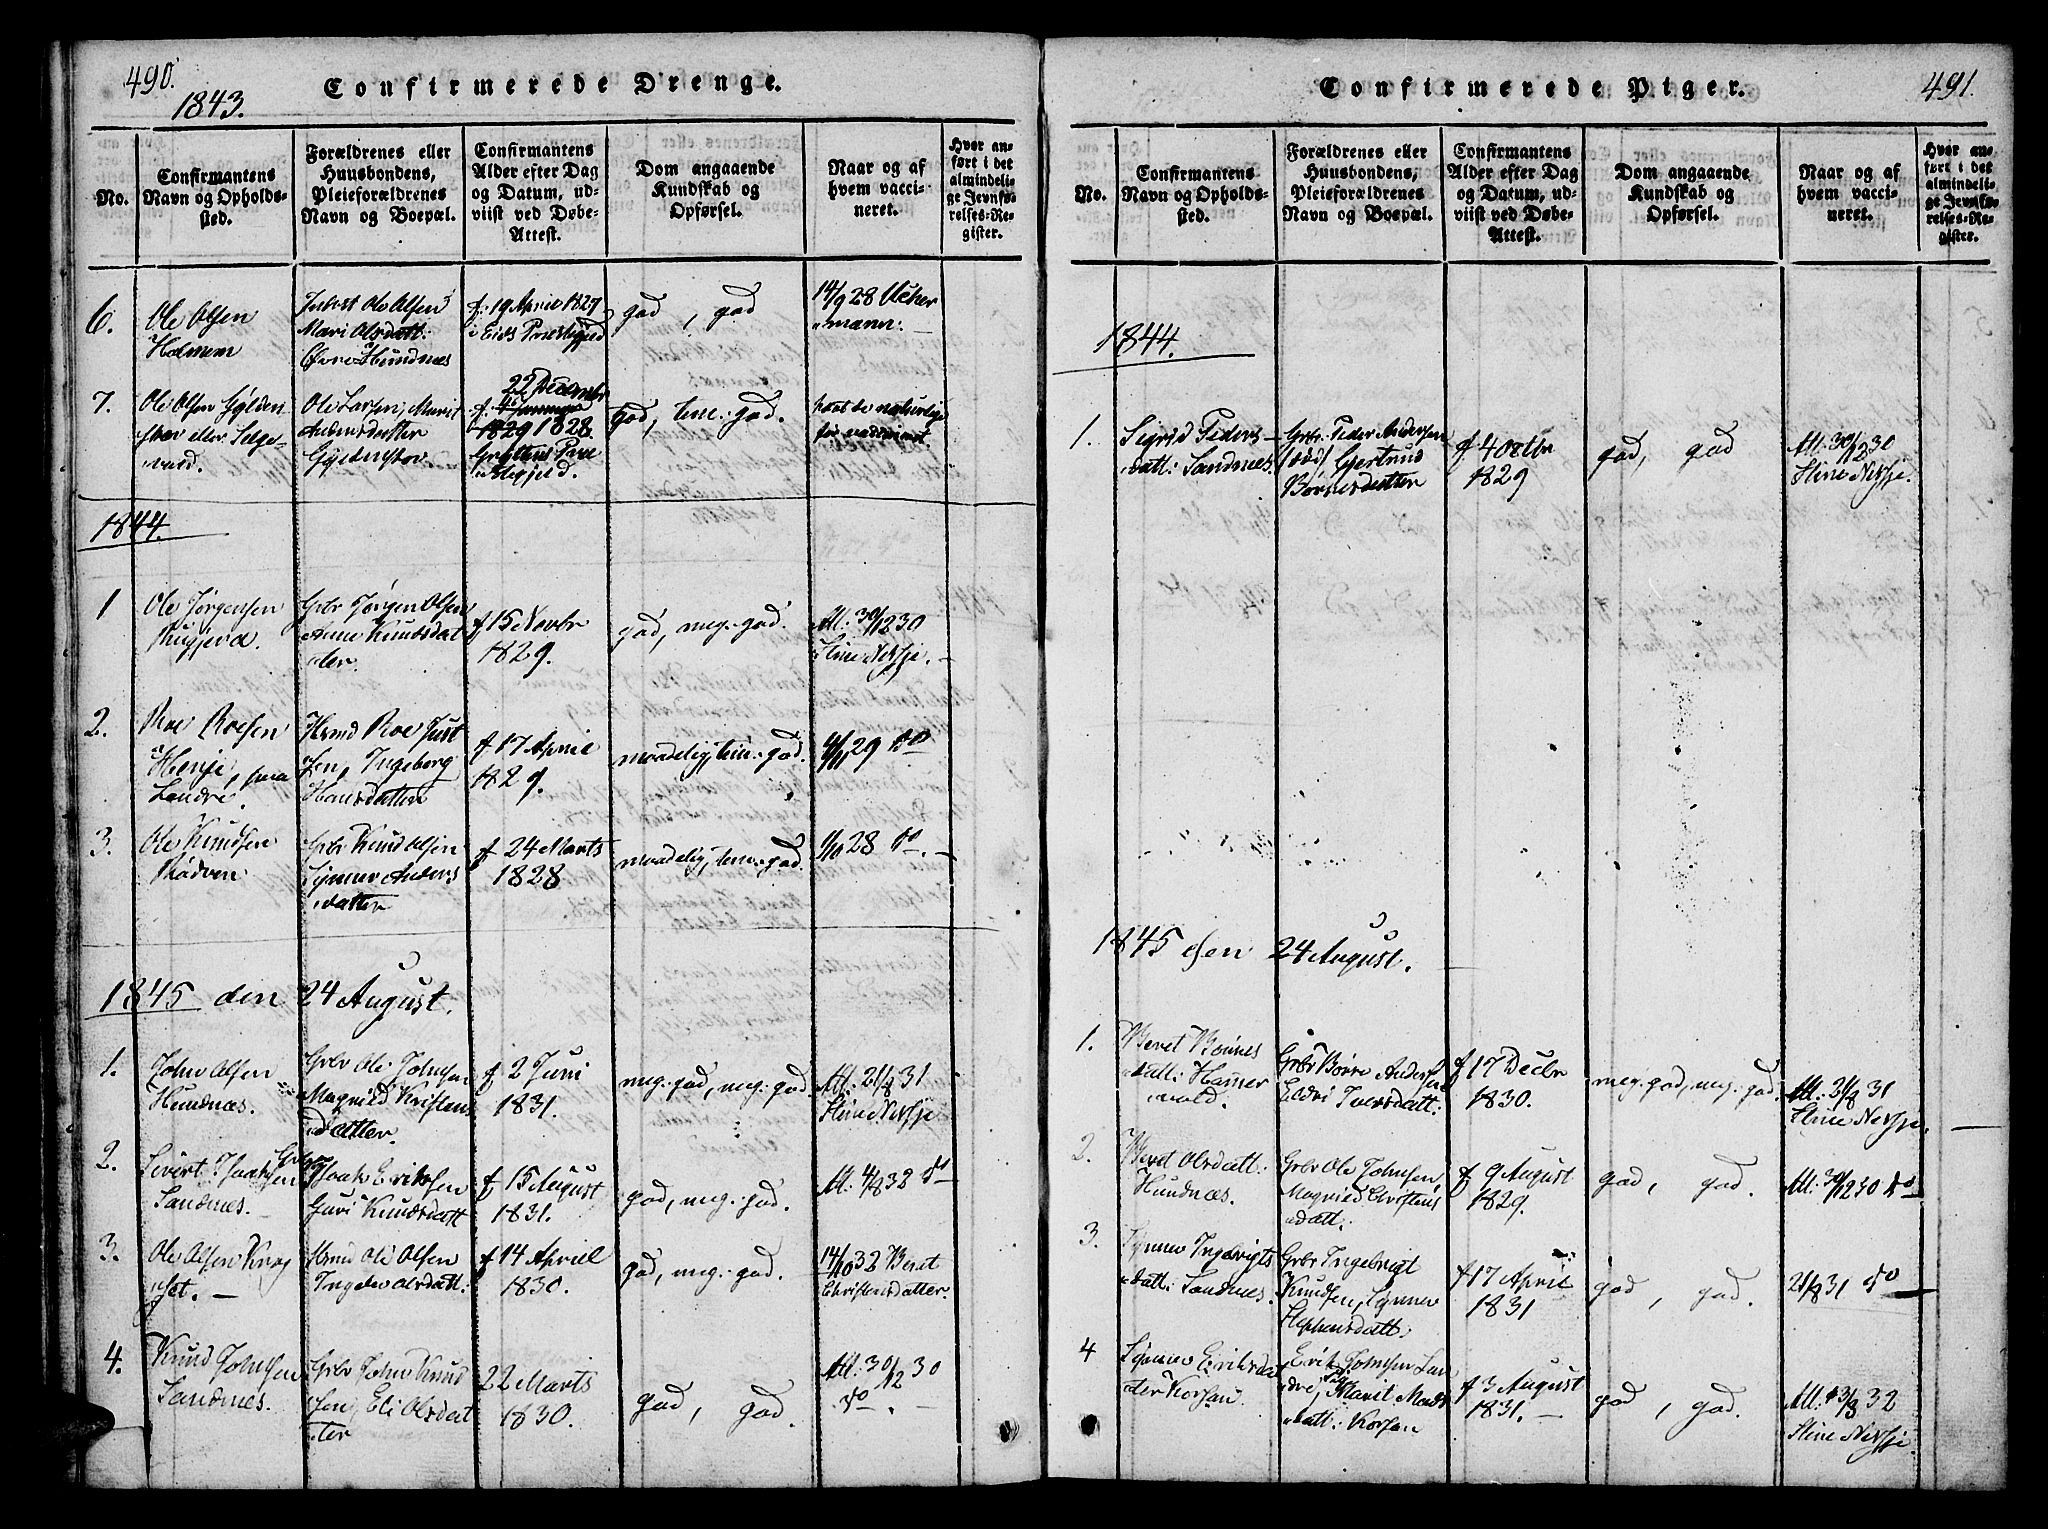 490.
1843.
Confirmerede Drenge.
No.
Confirmantens
Navn og Opholds-
sted.
Forældrenes eller
Huusbondens,
Pleieforældrenes
Navn og Boepæl.
Confirmantens
Alder efter Dag
og Datum, ud-
viist ved Døbe-
Attest.
Dom angaaende
Kundskab og
Opførsel.
Naar og af
hvem vacci-
neret.
Hvor an-
ført i det
almindeli-
ge Jevnfø-
relses-Re-
gister.
6.
Ole Olsen
Holmem
Ole Olsen
Mari Olsdatt:
Øvre Hundnæs
f. 19 April 1827
i Eids Præstegjeld
god, god
14/9 28
7.
Ole Olsen Gylden
skov eller Selge-
vold.
Ole Larsen, Marit
Andersdatter
Gyldenskov
22 December
1829 1828.
Gryttens Præ
stegjeld.
god, tem: god.
1844.
1
Ole Jørgensen
Gbr Jørgen Olsen
Anne Knudsdat
ter.
f 15 Novbr
1829.
god, meg: god.
Att: 30/12 30
Stine Nersje.
2.
Roe Roesen
Henje, fra
Landre.
Hmd Roe Just
sen, Ingeborg
Hansdatter
f 17 April
1829.
maadelig, tem: god.
4/11 29 do
3.
Ole Knudsen
Rødven
Gbr Knud Olsen
Synnev Anders
datter
f 24 Marts
1828
maadelig, tem: god.
1/10 28 do
1845 den 24 August.
1.
John Olsen
Hundnæs.
Gbr Ole Johnsen
Magnild Kristens
datter.
f 2 Juni
1831.
meg: god, meg: god.
Att: 21/8 31
Stine Nersje
2.
Sivert Isaaksen
Sandnes.
Gbr
Isaak Eriksen
Guri Knudsdatt
f 15 August
1831.
god, meg: god.
Att: 4/8 32 do
3.
Ole Olsen
Hmd Ole Olsen
Ingeb Olsdatt:
f 14 April
1830.
god, meg: god.
14/10 32 Beret
Christensdatter.
4.
Knud Johnsen
Sandnes.
Gbr John Knud
sen, Eli Olsdat
ter
22 Marts
1830.
god, god.
Att: 30/12 30
do.
Confirmerede Piger.
491.
No.
Confirmantens
Navn og Opholds-
sted.
Forældrenes eller
Huusbondens,
Pleieforældrenes
Navn og Boepæl.
Confirmantens
Alder efter Dag
og Datum, ud-
viist ved Døbe-
Attest.
Dom angaaende
Kundskab og
Opførsel.
Naar og af
hvem vacci-
neret.
Hvor an-
ført i det
almindeli-
ge Jevnfø-
relses-Re-
gister.
1844.
1.
Sigrid Peders-
datt: Sandnes.
Gbr: Peder Andersen
(død) Gjertrud
Børresdatter
f 4 Octbr
1829
god, god
Att: 30/12 30
Stine Nersje.
1845 den 24 August.
1.
Beret Børres
datt: Hammer
vold.
Gbr Børre Andersen
Eldri Iversdatt:
f 17 Decbr
1830.
meg: god, meg: god.
Att: 21/8 31
Stine Nersje.
2.
Beret Olsdatt:
Hundnæs.
Gbr Ole Johnsen,
Magnild Christens
datt.
f 9 August
1829.
god, god.
Att: 30/12 30 do
3.
Synnev Ingebrigts
datt: Sandnes.
Gbr Ingebrigt
Knudsen, Synnev
Stephensdatt:
f 17 April
1831
god, god.
21/8 31 do
4
Synnev Eriksdat
ter Korsan
Erik Johnsen Lan
dre, Marit Mads
datt: Korsan
f 3 August
1831.
god, god.
Att: 13/8 32
Stine Nersje.